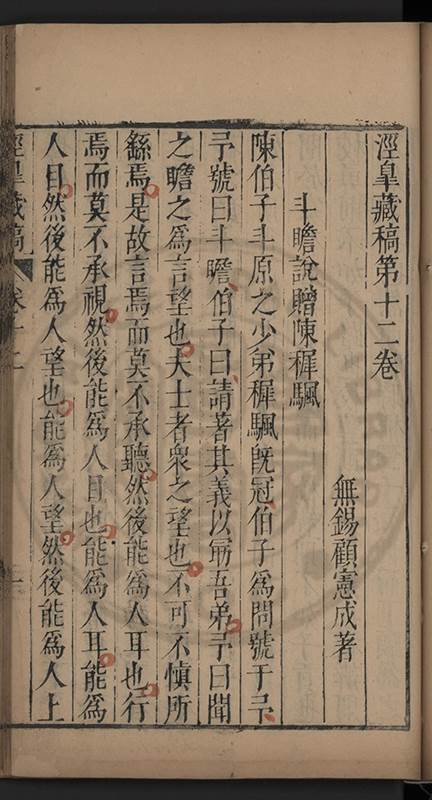 涇臯藏稿第十二卷
無錫顧憲成著
斗瞻說贈陳穉颿
陳伯子斗原之少弟穉颿旣冠伯子爲問號于予
予號曰斗瞻伯子曰請著其義以勗吾弟予曰聞
之瞻之爲言望也夫士者衆之望也不可不慎所
繇焉是故言焉而莫不承聽然後能爲人耳也行
焉而莫不承視然後能爲人目也能爲人耳能爲
人目然後能爲人望也能爲人望然後能爲人上
涇臯藏稿 卷十二 一